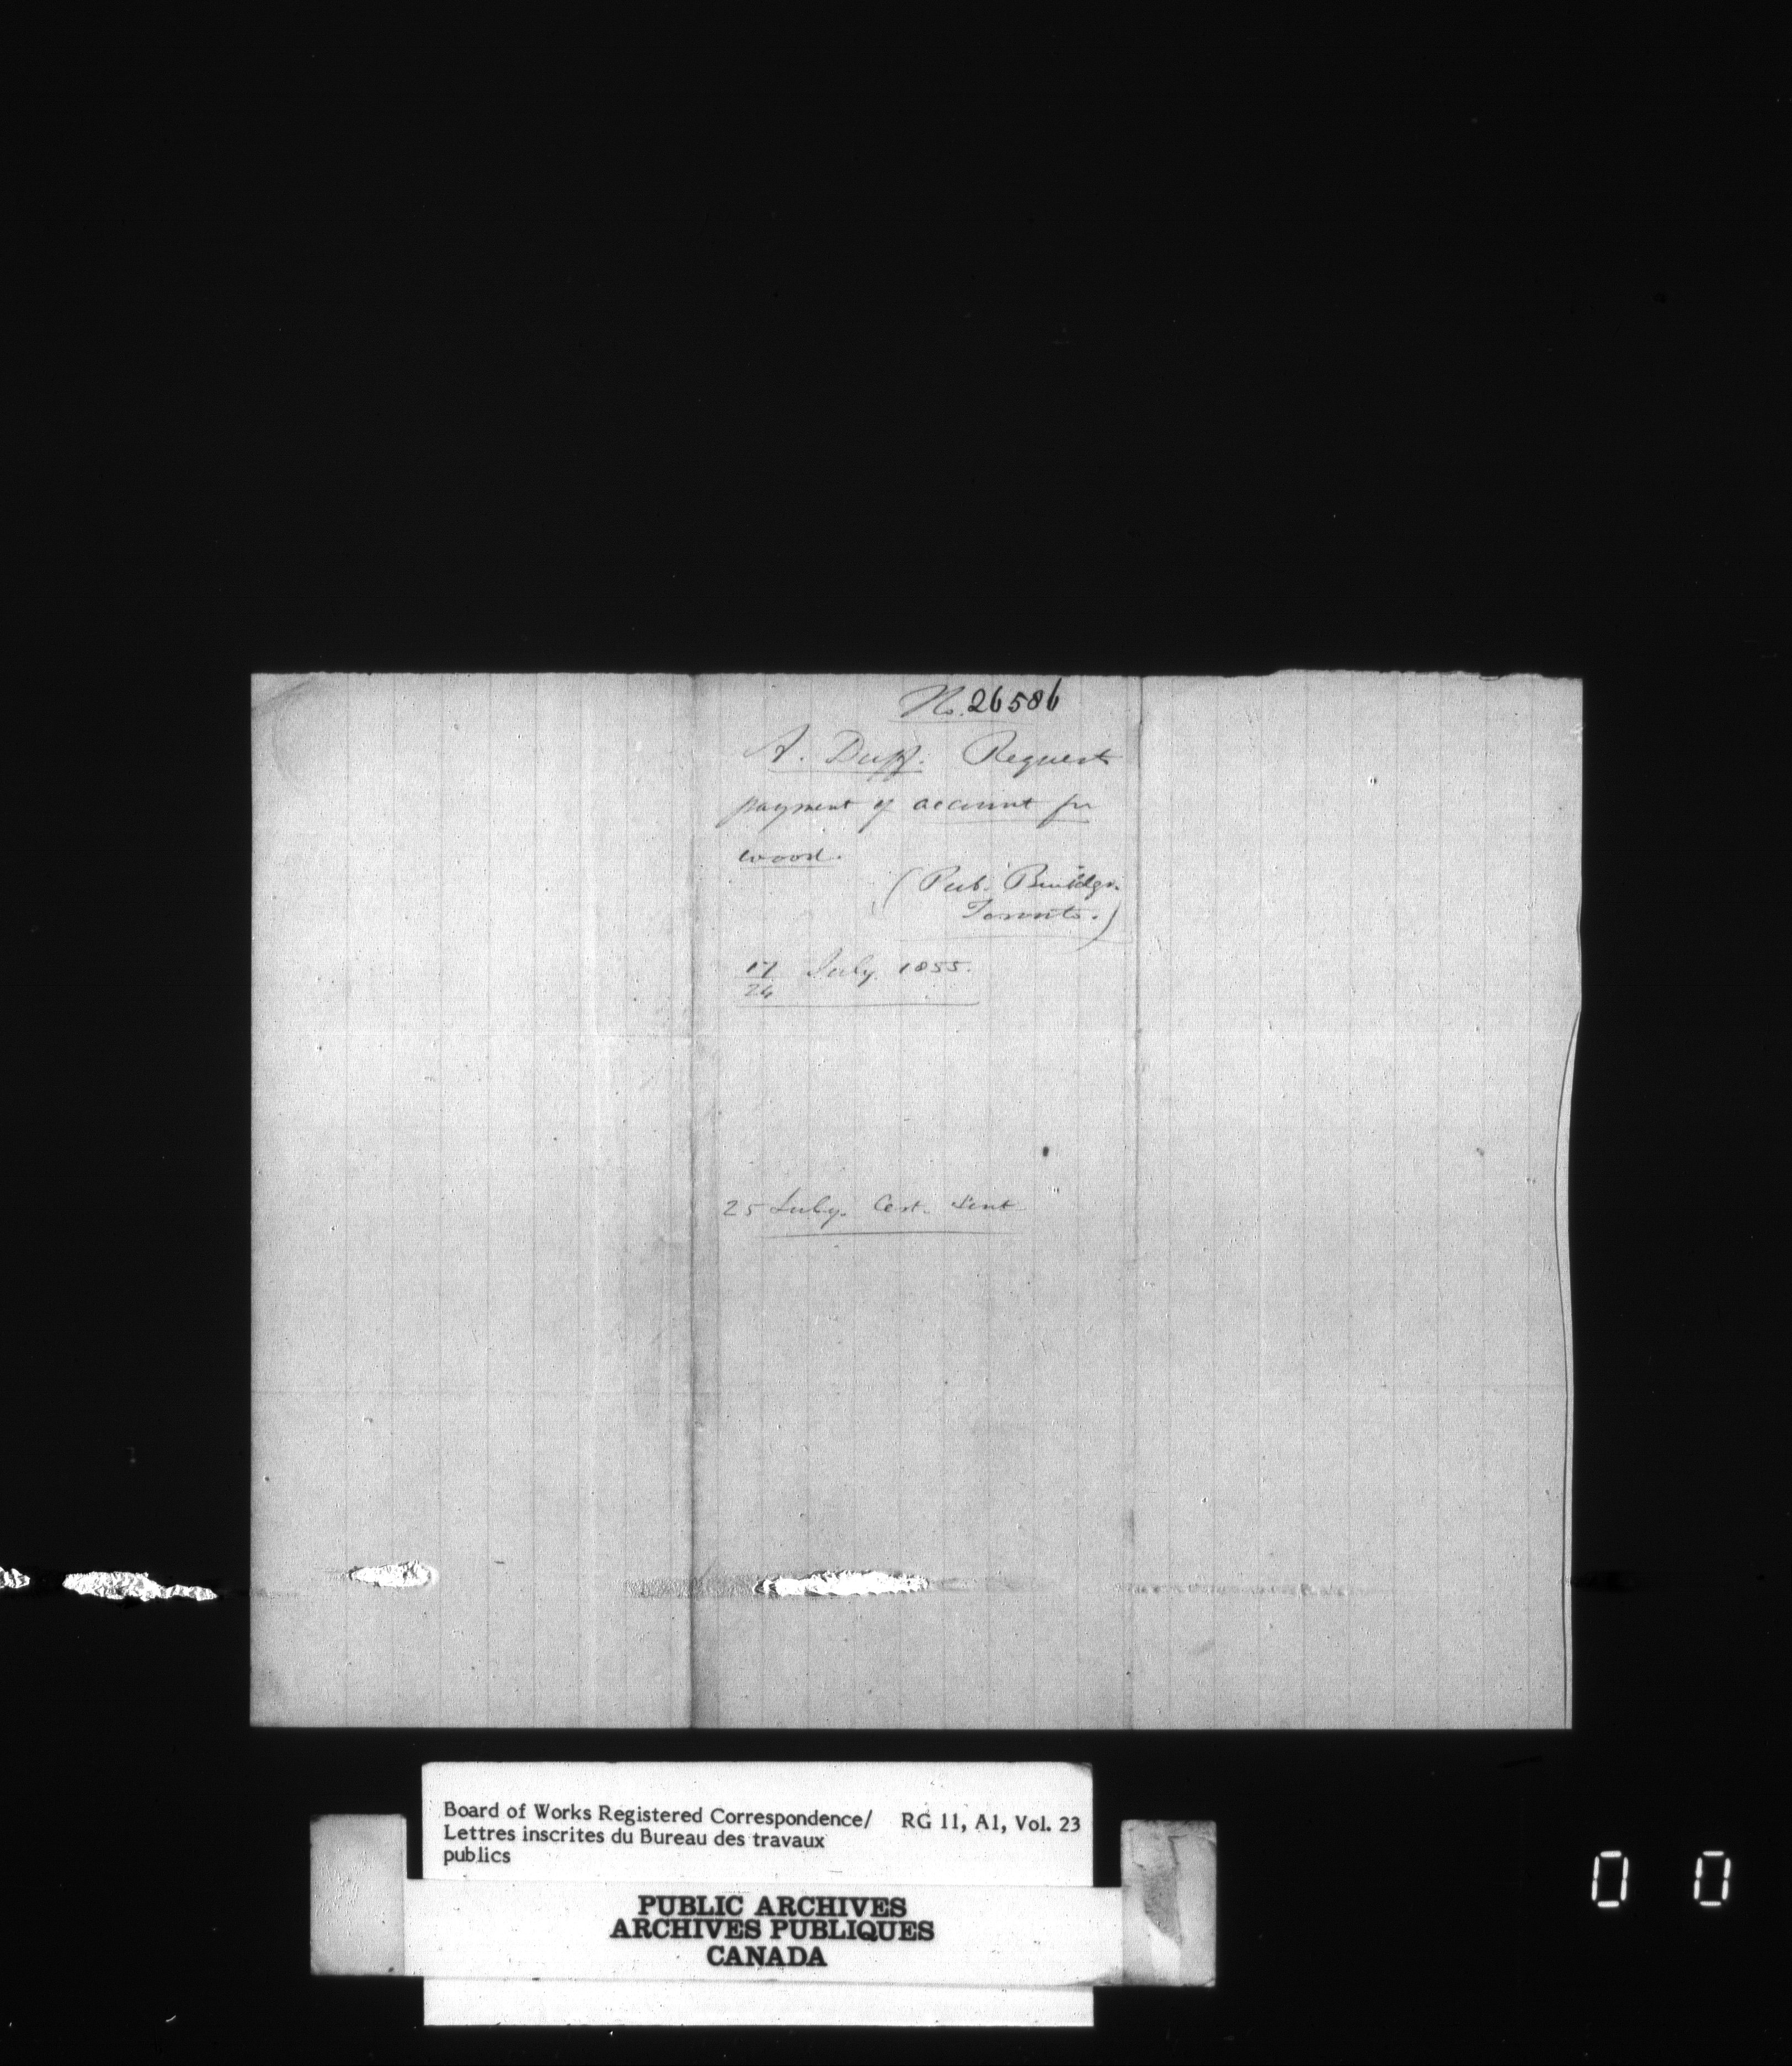 No. 26586
A. Duff. Request
payment of account for
wood.
(Pub. Buildgs.
Toronto.)
17 July. 1855.
24
25 July. Cert. Sent
Board of Works Registered Correspondence/ RG 11, A1, Vol. 23
Lettres inscrites du Bureau des travaux
publics
PUBLIC ARCHIVES
ARCHIVES PUBLIQUES
CANADA
0 0